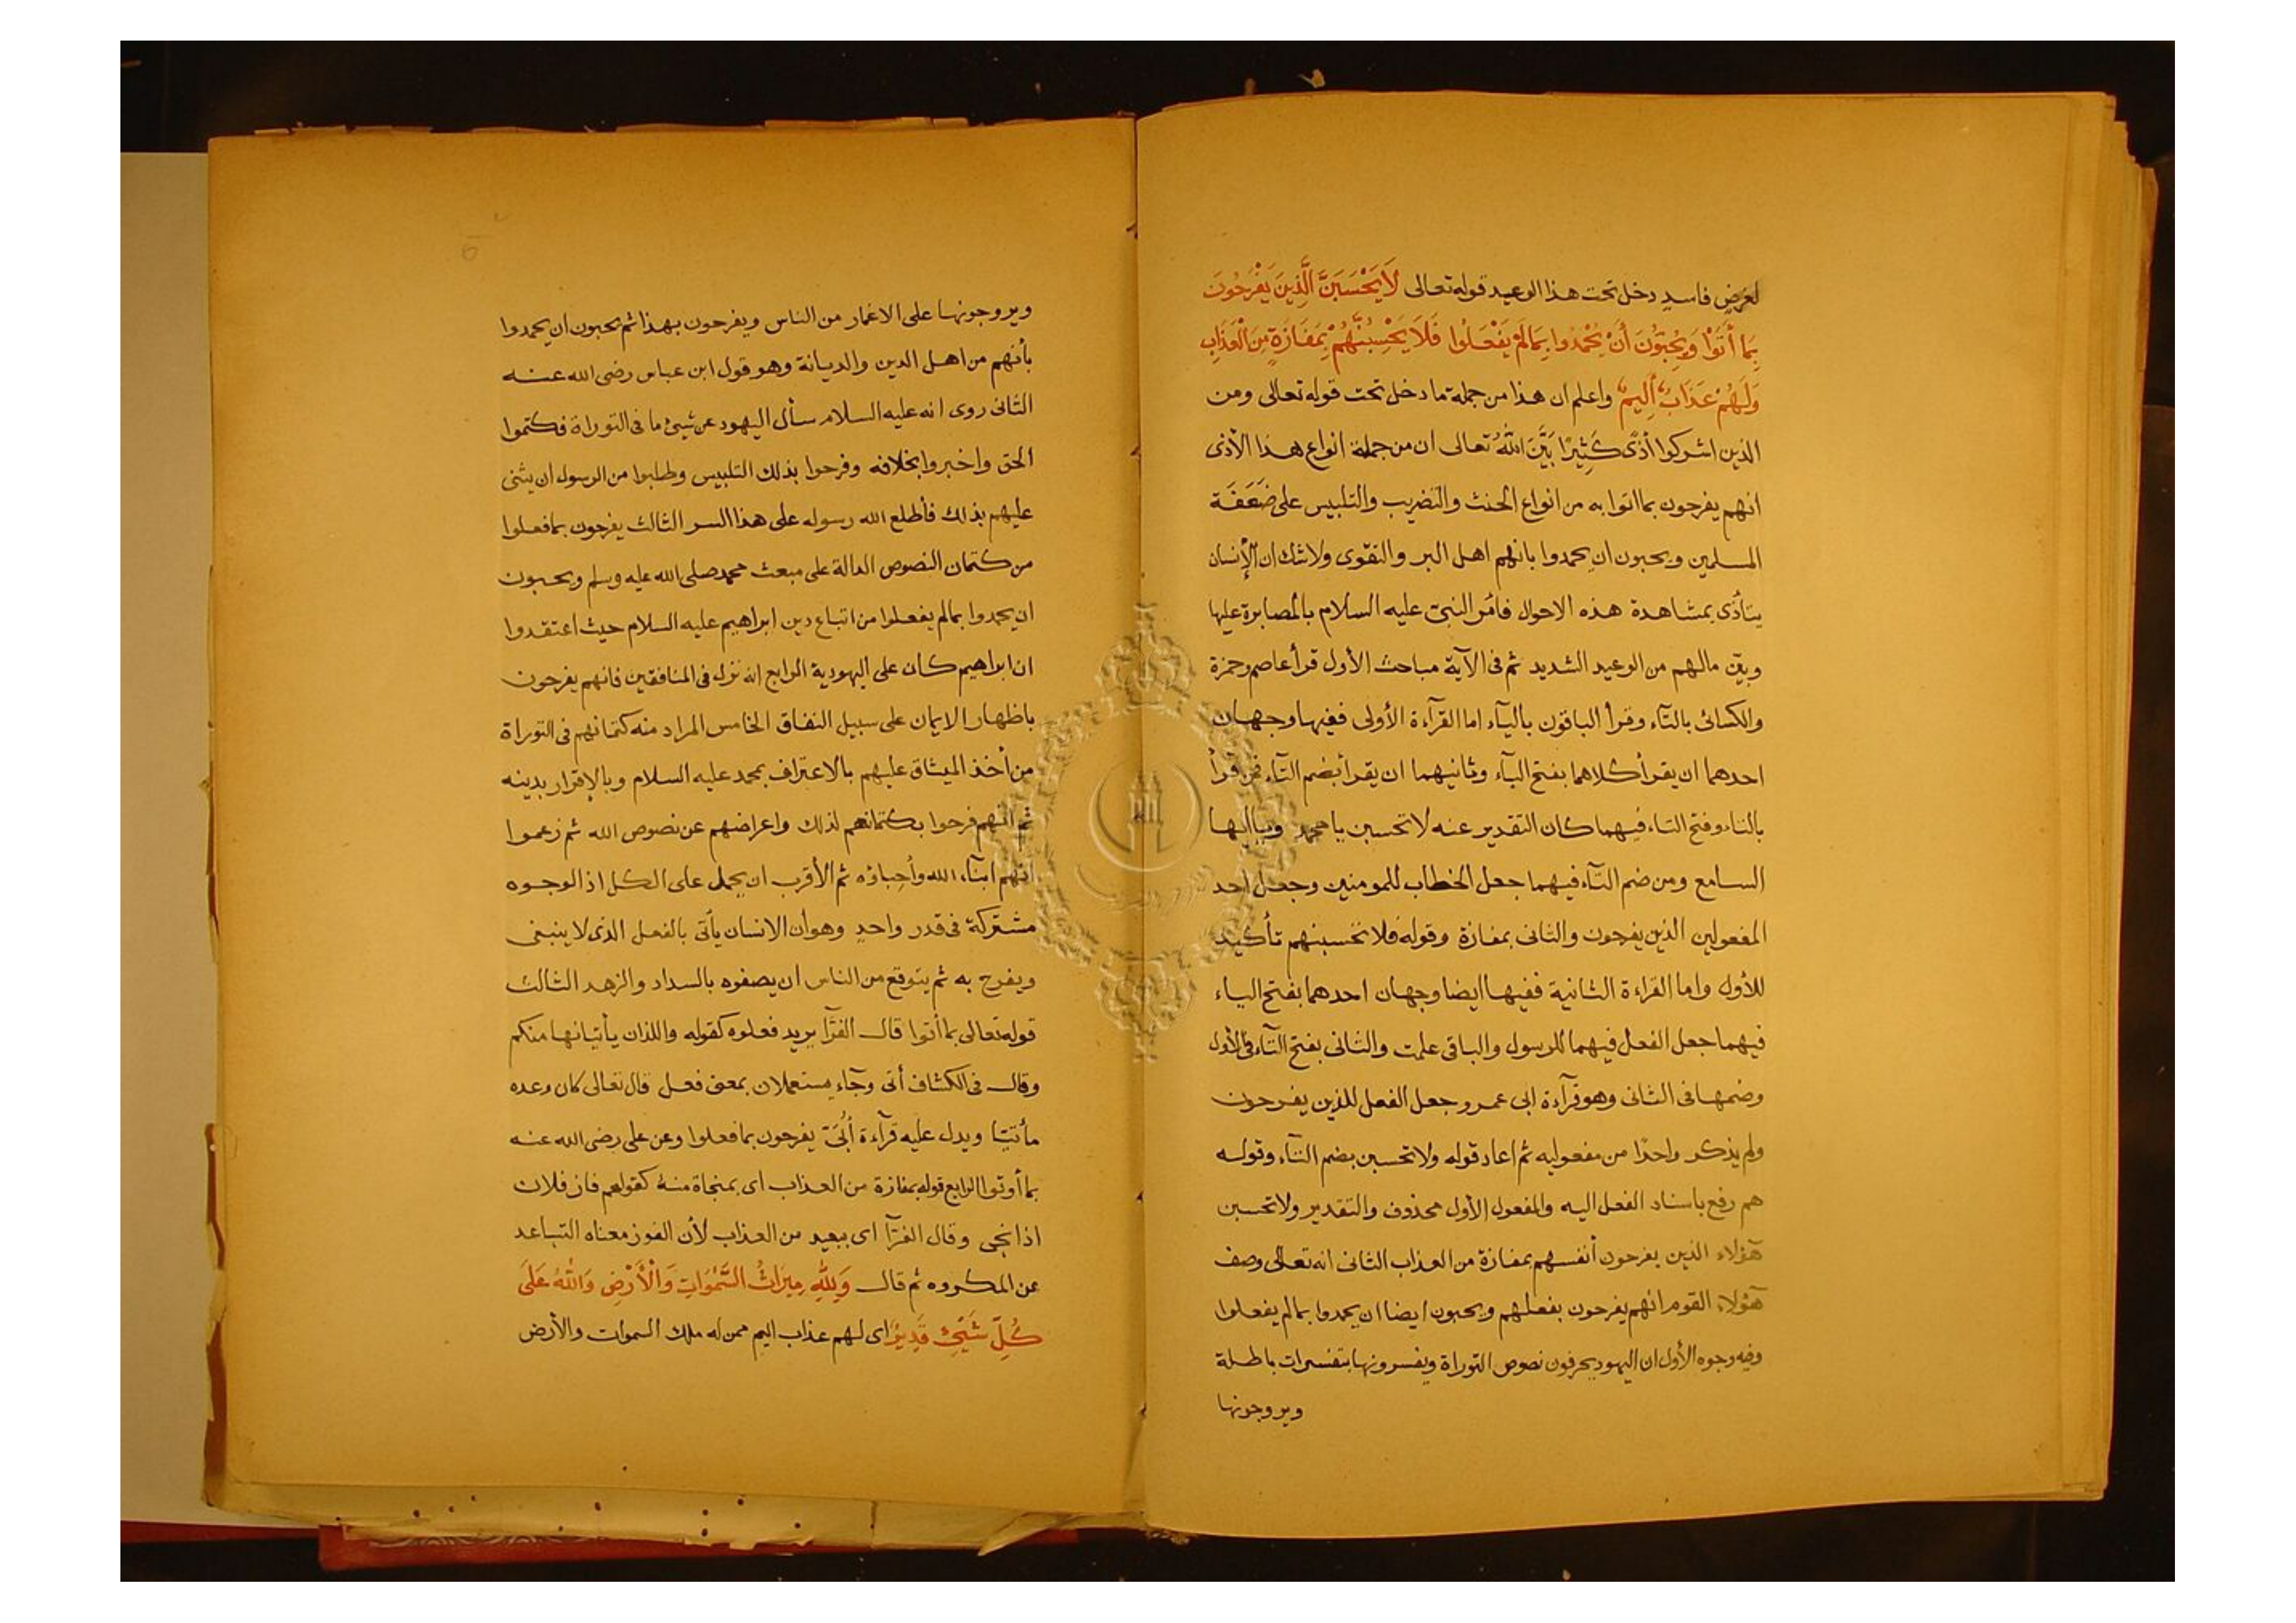 لغرض فاسد دخل تحت هذا الوعيد قوله تعالى لَا يَحْسَبَنَّ الَّذِينَ يَفْرَحُونَ
بِمَا أَتَوْا وَيُحِبُّونَ أَنْ يُحْمَدُوا بِمَا لَمْ يَفْعَلُوا فَلَا يَحْسِبُنَّهُمْ بِمَفَازَةٍ مِنَ الْعَذَابِ
وَلَهُمْ عَذَابٌ أَلِيمٌ واعلم ان هذا من جملة ما دخل تحت قوله تعالى ومن
الذين اشركوا أذًى كَثِيرًا بَيَّنَ اللهُ تعالى ان من جملة انواع هذا الأذى
انهم يفرحون بما اتوا به من انواع الخبث والتضريب والتلبيس على ضَعَفَة
المسلمين ويحبون ان يحمدوا بانهم اهل البر والتقوى ولا شك ان الإنسان
يتأذى بمشاهدة هذه الاحوال فامر النبى عليه السلام بالمصابرة عليها
وبين مالهم من الوعيد الشديد ثم فى الآية مباحث الأول قرأ عاصم وحمزة
والكسائى بالتآء وقرأ الباقون باليآء اما القرآءة الأولى ففيها وجهان
احدهما ان يقرأ كلاهما بفتح البآء وثانيهما ان يقرأ بضم التآء فمن قرأ
بالتاء وفتح التاء فيهما كان التقدير عنه لا تحسبن يا محمد ويا ايها
السامع ومن ضم التآء فيهما جعل الخطاب للمومنين وجعل احد
المفعولين الذين يفرحون والثانى بمفازة وقوله فلا تحسبنهم تأكيد
للأول واما القراءة الثانية ففيها ايضا وجهان احدهما بفتح الياء
فيهما جعل الفعل فيهما للرسول والباقى علمت والثانى بفتح التآء فى الأول
وضمها فى الثانى وهو قرآءة ابى عمرو جعل الفعل للذين يفرحون
ولم يذكر واحدًا من مفعوليه ثم اعاد قوله ولا تحسبن بضم التآء وقوله
هم رفع باسناد الفعل اليه والمفعول الأول محذوف والتقدير ولا تحسبن
هؤلاء الذين يفرحون أنفسهم بمفازة من العذاب الثانى انه تعالى وصف
هؤلاء القوم انهم يفرحون بفعلهم ويحبون ايضا ان يحمدوا بما لم يفعلوا
وفيه وجوه الأول ان اليهود يحرفون نصوص التوراة ويفسرونها بتفسيرات باطلة
ويروجونها
ويروجونها على الاغمار من الناس ويفرحون بهذا ثم يحبون ان يحمدوا
بأنهم من اهل الدين والديانة وهو قول ابن عباس رضى الله عنه
الثانى روى انه عليه السلام سأل اليهود عن شيئ ما فى التوراة فكتموا
الحق واخبروا بخلافه وفرحوا بذلك التلبيس وطلبوا من الرسول ان يثنى
عليهم بذلك فأطلع الله رسوله على هذا السر الثالث يفرحون بما فعلوا
من كتمان النصوص الدالة على مبعث محمد صلى الله عليه وسلم ويحبون
ان يحمدوا بما لم يفعلوا من اتباع دين ابراهيم عليه السلام حيث اعتقدوا
ان ابراهيم كان على اليهودية الرابع انه نزل فى المنافقين فانهم يفرحون
باظهار الايمان على سبيل النفاق الخامس المراد منه كتمانهم فى التوراة
من أخذ الميثاق عليهم بالاعتراف بمحمد عليه السلام وبالإقرار بدينه
ثم انهم فرحوا بكتمانهم لذلك واعراضهم عن نصوص الله ثم زعموا
انهم ابنآء الله وأحباؤه ثم الأقرب ان يحمل على الكل اذ الوجوه
مشتركة فى قدر واحد وهو أن الانسان يأتى بالفعل الذى لا ينبغى
ويفرح به ثم يتوقع من الناس ان يصفوه بالسداد والزهد الثالث
قوله تعالى بما أتوا قال الفرّآ يريد فعلوه كقوله واللذان يأتيانها منكم
وقال فى الكشاف أتى وجآء يستعملان بمعنى فعل قال تعالى كان وعده
مأتيّا ويدل عليه قرآءة أُبَىّ يفرحون بما فعلوا وعن على رضى الله عنه
بما أوتوا الرابع قوله بمفازة من العذاب اى بمنجاة منه كقولهم فاز فلان
اذا نجى وقال الفرّآ اى ببعيد من العذاب لأن الفوز معناه التباعد
عن المكروه ثم قال وَلِلّٰهِ مِيرَاثُ السَّمٰوَاتِ وَالْأَرْضِ وَاللهُ عَلَى
كُلِّ شَيْئٍ قَدِيرٌ اى لهم عذاب اليم ممن له ملك السموات والأرض